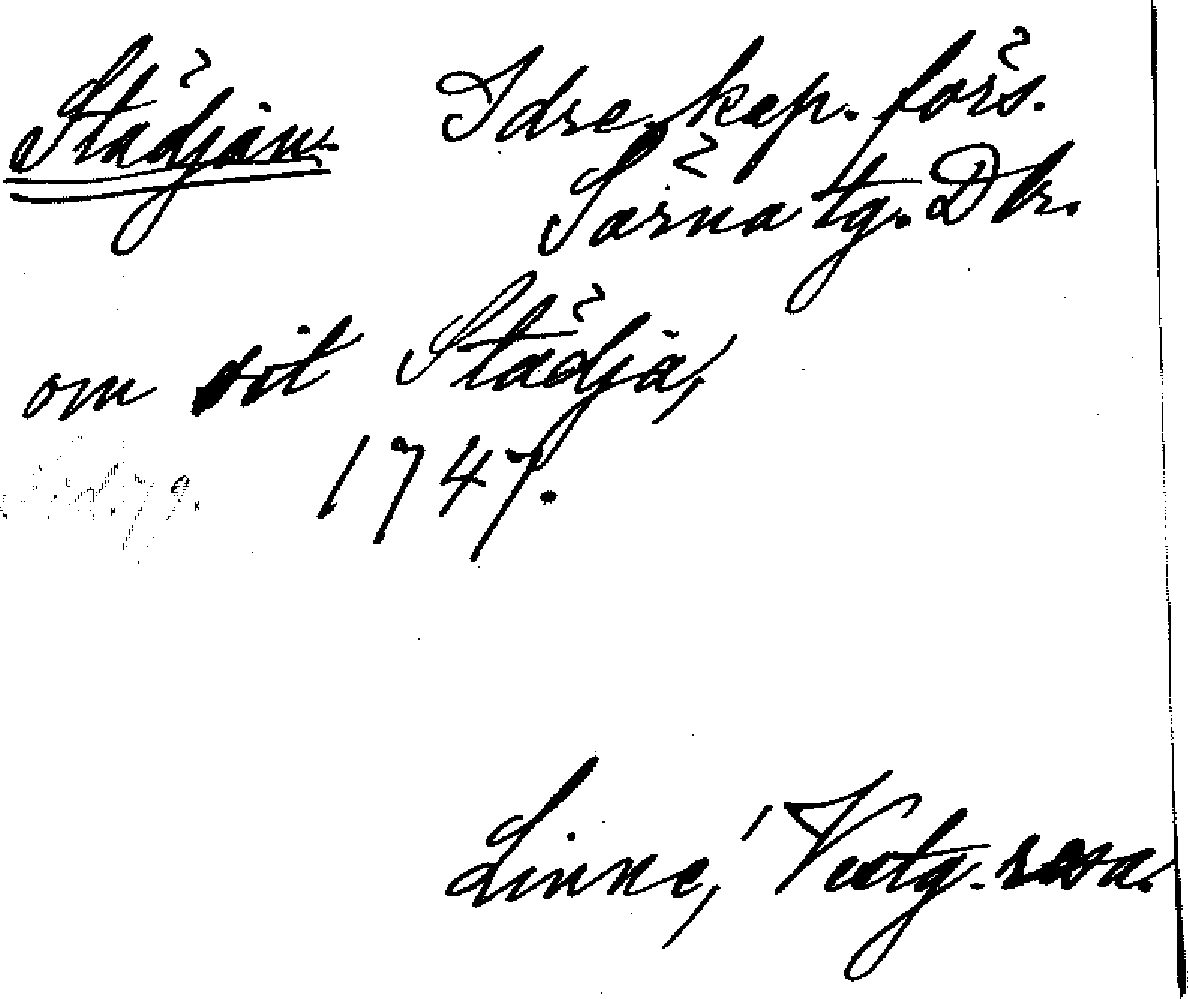 Städjan. Idre kap. förs.
Särna tg. Dlr.
om vit Städja,
1747.
Linné, Vestg. resa.